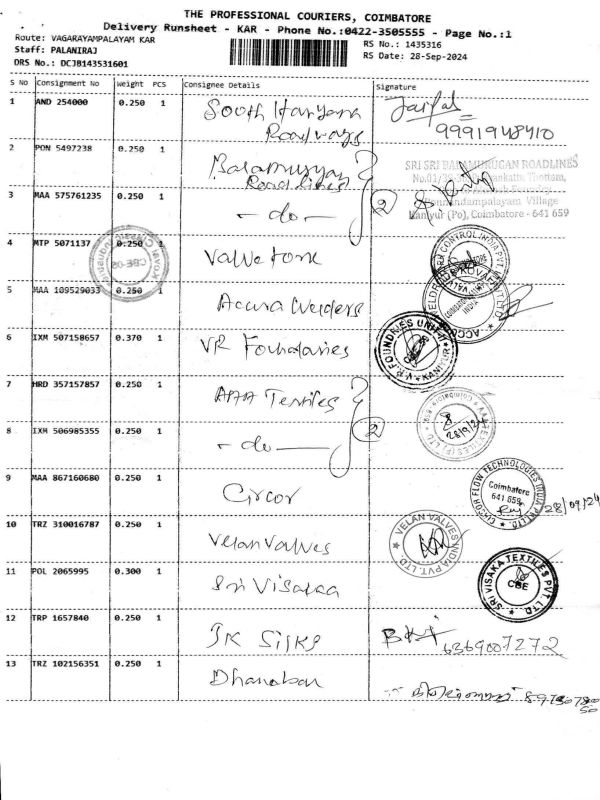 THE PROFESSIONAL COURIERS, COIMBATORE
Delivery Runsheet - KAR - Phone No.:0422-3505555 - Page No.:1
Route: VAGARAYAMPALAYAM KAR
RS No.: 1435316
Staff: PALANIRAJ
RS Date: 28-Sep-2024
DRS No.: DCJB143531601
S No Consignment No Weight PCS Consignee Details Signature
1 AND 254000 0.250 1 South Haryana Roadways
9991948410
2 PON 5497238 0.250 1 Balamurugan Road Lines
SRI SRI BALAMURUGAN ROADLINES
Thottam,
Village
Kaniyur (Po), Coimbatore - 641 659
3 MAA 575761235 0.250 1 - do - 2
4 MTP 5071137 0.250 1 Valvetork
5 MAA 109529033 0.250 1 Accura Welders
6 IXM 507158657 0.370 1 VR Foundaries
FOUNDRIES UNIT-II
KANIYUR
7 HRD 357157857 0.250 1 AAA Textiles
8 IXM 506985355 0.250 1 - do - 2
28/9/24
9 MAA 867160680 0.250 1 Circor
CIRCOR FLOW TECHNOLOGIES INDIA PVT LTD.
Coimbatore
641 659
28/09/24
10 TRZ 310016787 0.250 1 Velan Valves
VELAN VALVES INDIA PVT. LTD
11 POL 2065995 0.300 1 Sri Visaka
SRI VISAKA TEXTILES PVT LTD.
CBE
12 TRP 1657840 0.250 1 JK Silks
6369007272
13 TRZ 102156351 0.250 1 Dhanabar